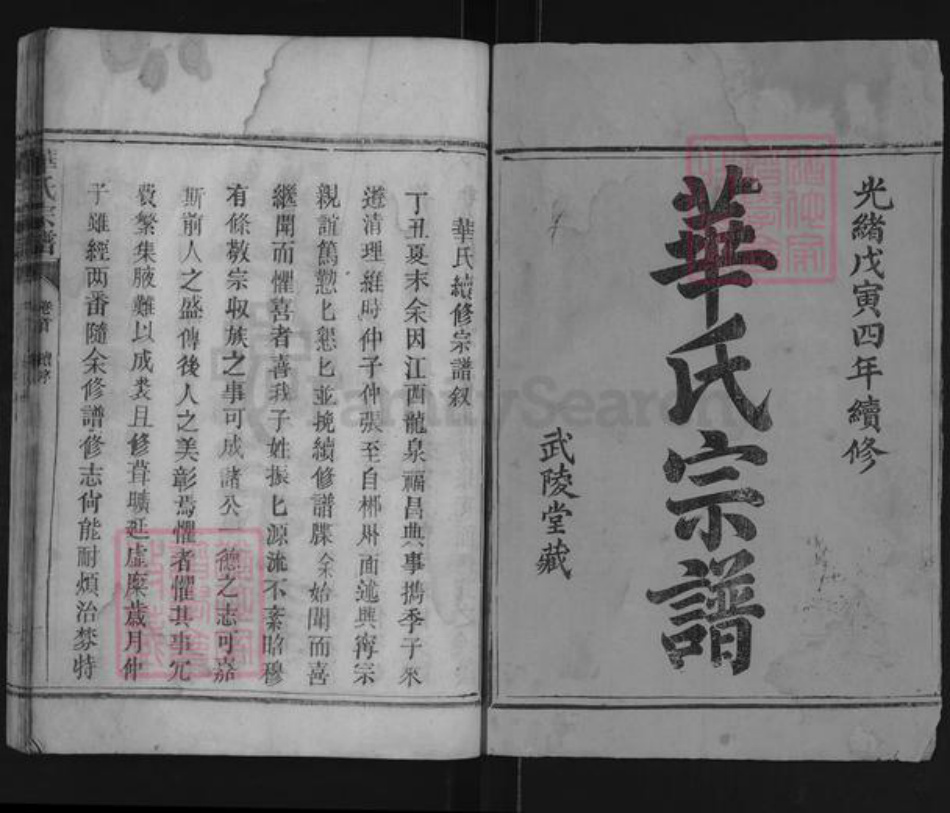 光緒戊寅四年續修
華氏宗譜
武陵堂藏
華氏續修宗譜叙
丁丑夏末余因江西龍泉福昌典事攜季子來
遊清理維時仲子仲張至自郴州面述興寧宗
親誼篤懃匕懇匕並挽續修譜牒余始聞而喜
繼聞而懼喜者喜我子姓振匕源流不紊昭穆
有條敬宗收族之事可成諸公一德之志可嘉
斯前人之盛傳後人之美彰焉懼者懼其事冗
費繁集腋難以成裘且修葺曠延虛糜歲月仲
子雖經两番隨余修譜修志尙能耐煩治棼特
華氏宗譜
卷首
續序
FamilySearch